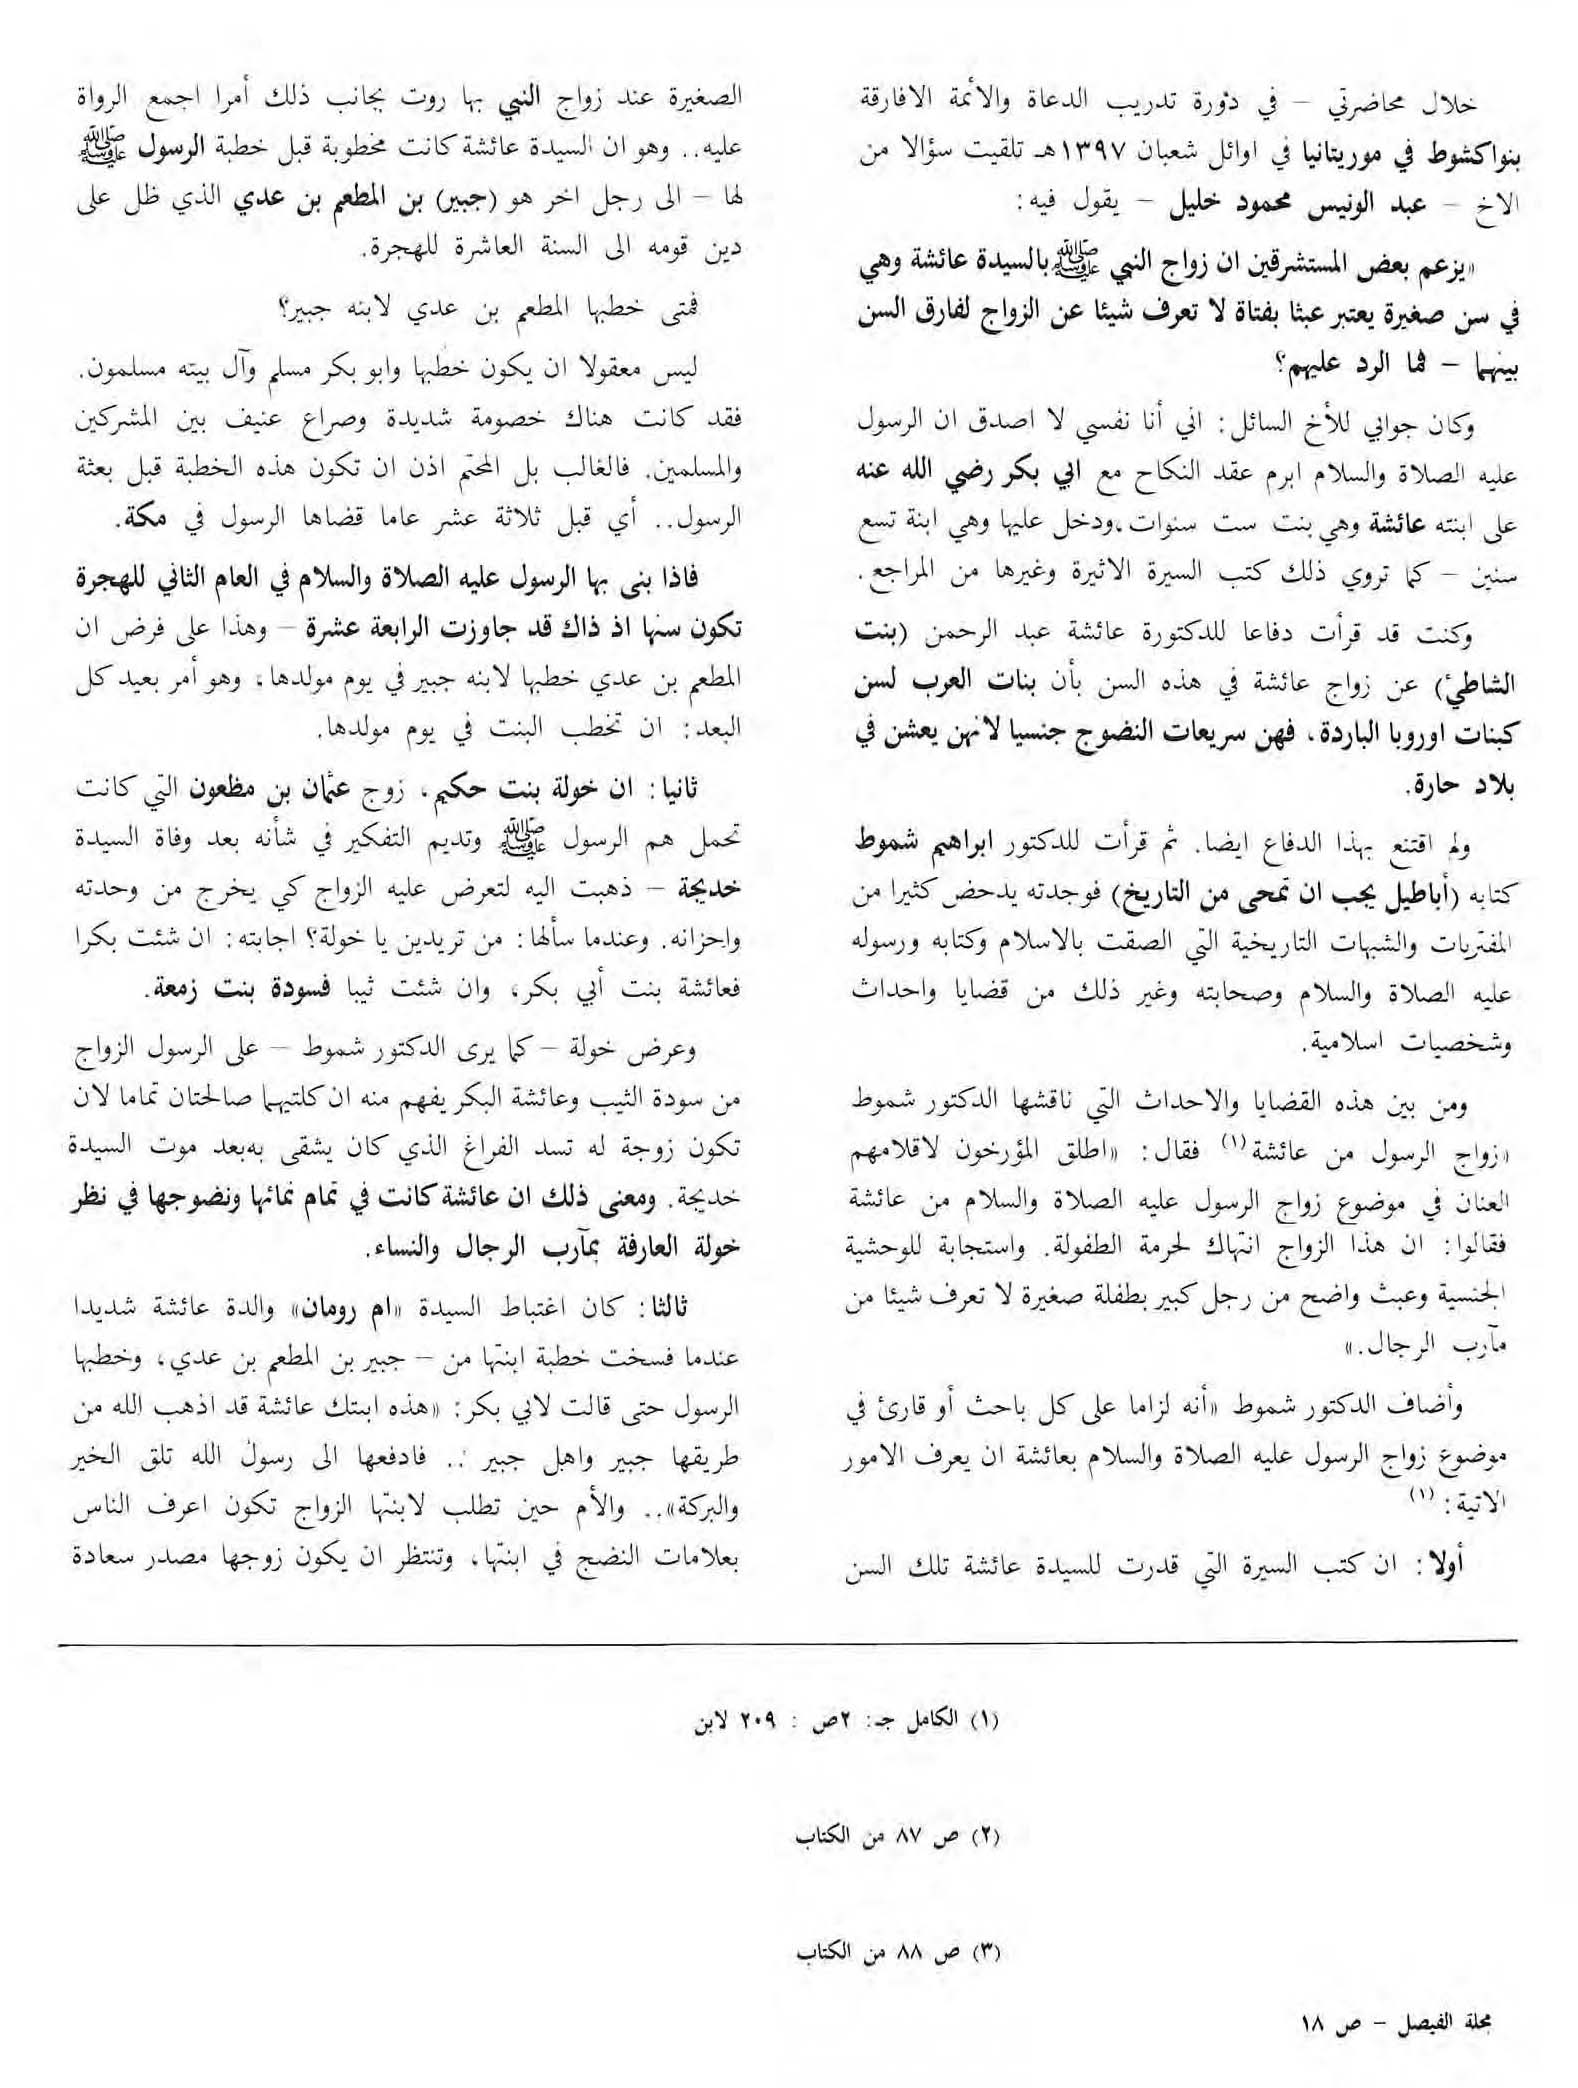 خلال محاضرتي – في دورة تدريب الدعاة والأئمة الافارقة
بنواكشوط في موريتانيا في اوائل شعبان ١٣٩٧هـ تلقيت سؤالا من
الاخ – عبد الونيس محمود خليل – يقول فيه:
«يزعم بعض المستشرقين ان زواج النبي ﷺ بالسيدة عائشة وهي
في سن صغيرة يعتبر عبثا بفتاة لا تعرف شيئا عن الزواج لفارق السن
بينهما – فما الرد عليهم؟
وكان جوابي للأخ السائل: اني أنا نفسي لا اصدق ان الرسول
عليه الصلاة والسلام ابرم عقد النكاح مع ابي بكر رضي الله عنه
على ابنته عائشة وهي بنت ست سنوات، ودخل عليها وهي ابنة تسع
سنين – كما تروي ذلك كتب السيرة الاثيرة وغيرها من المراجع.
وكنت قد قرأت دفاعا للدكتورة عائشة عبد الرحمن (بنت
الشاطئ) عن زواج عائشة في هذه السن بأن بنات العرب لسن
كبنات اوروبا الباردة، فهن سريعات النضوج جنسيا لانهن يعشن في
بلاد حارة.
ولم اقتنع بهذا الدفاع ايضا. ثم قرأت للدكتور ابراهيم شموط
كتابه (أباطيل يجب ان تمحى من التاريخ) فوجدته يدحض كثيرا من
المفتريات والشبهات التاريخية التي الصقت بالاسلام وكتابه ورسوله
عليه الصلاة والسلام وصحابته وغير ذلك من قضايا واحداث
وشخصيات اسلامية.
ومن بين هذه القضايا والاحداث التي ناقشها الدكتور شموط
«زواج الرسول من عائشة (١) فقال: «اطلق المؤرخون لاقلامهم
العنان في موضوع زواج الرسول عليه الصلاة والسلام من عائشة
فقالوا: ان هذا الزواج انتهاك لحرمة الطفولة. واستجابة للوحشية
الجنسية وعبث واضح من رجل كبير بطفلة صغيرة لا تعرف شيئا من
مآرب الرجال.»
وأضاف الدكتور شموط «أنه لزاما على كل باحث أو قارئ في
موضوع زواج الرسول عليه الصلاة والسلام بعائشة ان يعرف الامور
الاتية: (١)
أولا: ان كتب السيرة التي قدرت للسيدة عائشة تلك السن
الصغيرة عند زواج النبي بها روت بجانب ذلك أمرا اجمع الرواة
عليه.. وهو ان السيدة عائشة كانت مخطوبة قبل خطبة الرسول ﷺ
لها – الى رجل اخر هو (جبير) بن المطعم بن عدي الذي ظل على
دين قومه الى السنة العاشرة للهجرة.
فمتى خطبها المطعم بن عدي لابنه جبير؟
ليس معقولا ان يكون خطبها وابو بكر مسلم وآل بيته مسلمون.
فقد كانت هناك خصومة شديدة وصراع عنيف بين المشركين
والمسلمين. فالغالب بل المحتم اذن ان تكون هذه الخطبة قبل بعثة
الرسول.. أي قبل ثلاثة عشر عاما قضاها الرسول في مكة.
فاذا بنى بها الرسول عليه الصلاة والسلام في العام الثاني للهجرة
تكون سنها اذ ذاك قد جاوزت الرابعة عشرة – وهذا على فرض ان
المطعم بن عدي خطبها لابنه جبير في يوم مولدها، وهو أمر بعيد كل
البعد: ان تخطب البنت في يوم مولدها.
ثانيا: ان خولة بنت حكيم، زوج عثمان بن مظعون التي كانت
تحمل هم الرسول ﷺ وتديم التفكير في شأنه بعد وفاة السيدة
خديجة – ذهبت اليه لتعرض عليه الزواج كي يخرج من وحدته
واحزانه. وعندما سألها: من تريدين يا خولة؟ اجابته: ان شئت بكرا
فعائشة بنت أبي بكر، وان شئت ثيبا فسودة بنت زمعة.
وعرض خولة – كما يرى الدكتور شموط – على الرسول الزواج
من سودة الثيب وعائشة البكر يفهم منه ان كلتيهما صالحتان تماما لان
تكون زوجة له تسد الفراغ الذي كان يشقى به بعد موت السيدة
خديجة. ومعنى ذلك ان عائشة كانت في تمام نمائها ونضوجها في نظر
خولة العارفة بمآرب الرجال والنساء.
ثالثا: كان اغتباط السيدة «ام رومان» والدة عائشة شديدا
عندما فسخت خطبة ابنتها من – جبير بن المطعم بن عدي، وخطبها
الرسول حتى قالت لابي بكر: «هذه ابنتك عائشة قد اذهب الله من
طريقها جبير واهل جبير .. فادفعها الى رسول الله تلق الخير
والبركة».. والأم حين تطلب لابنتها الزواج تكون اعرف الناس
بعلامات النضج في ابنتها، وتنتظر ان يكون زوجها مصدر سعادة
(١) الكامل جـ: ٢ص : ٢٠٩ لابن
(٢) ص ٨٧ من الكتاب
(٣) ص ٨٨ من الكتاب
مجلة الفيصل – ص ١٨